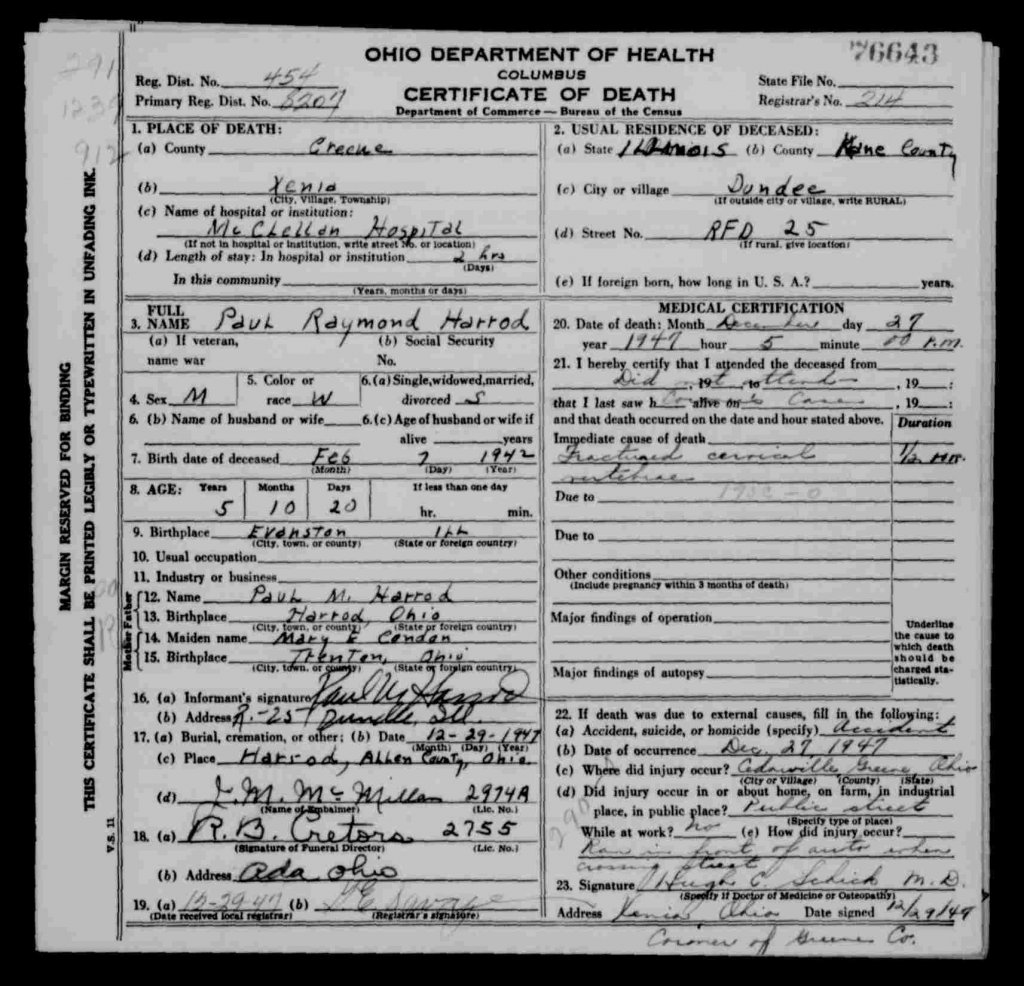 76643
OHIO DEPARTMENT OF HEALTH
COLUMBUS
CERTIFICATE OF DEATH
Department of Commerce — Bureau of the Census
Reg. Dist. No. 454
Primary Reg. Dist. No. 8207
State File No.
Registrar's No. 214
291
912
MARGIN RESERVED FOR BINDING
THIS CERTIFICATE SHALL BE PRINTED LEGIBLY OR TYPEWRITTEN IN UNFADING INK.
V.S. 11
1. PLACE OF DEATH:
(a) County Greene
(b) Xenia
(City, Village, Township)
(c) Name of hospital or institution:
McClellan Hospital
(If not in hospital or institution, write street No. or location)
(d) Length of stay: In hospital or institution 2 hrs
(Days)
In this community
(Years, months or days)
2. USUAL RESIDENCE OF DECEASED:
(a) State Illinois (b) County Kane County
(c) City or village Dundee
(If outside city or village, write RURAL)
(d) Street No. RFD 25
(If rural, give location)
(e) If foreign born, how long in U. S. A.? years.
3. FULL NAME Paul Raymond Harrod
(a) If veteran, name war
(b) Social Security No.
4. Sex M
5. Color or race W
6. (a) Single, widowed, married, divorced S
6. (b) Name of husband or wife
6. (c) Age of husband or wife if alive years
7. Birth date of deceased Feb 7 1942
(Month) (Day) (Year)
8. AGE: Years Months Days If less than one day
5 10 20 hr. min.
9. Birthplace Evanston Ill
(City, town, or county) (State or foreign country)
10. Usual occupation
11. Industry or business
Father
12. Name Paul M. Harrod
13. Birthplace Harrod, Ohio
(City, town, or county) (State or foreign country)
Mother
14. Maiden name Mary E Condon
15. Birthplace Trenton, Ohio
(City, town, or county) (State or foreign country)
16. (a) Informant's signature Paul M Harrod
(b) Address R.-25 Dundee, Ill.
17. (a) Burial, cremation, or other; (b) Date 12-29-1947
(Month) (Day) (Year)
(c) Place Harrod, Allen County, Ohio
(d) J. M. McMillan 2974A
(Name of Embalmer) (Lic. No.)
18. (a) R. B. Cretors 2755
(Signature of Funeral Director) (Lic. No.)
(b) Address Ada Ohio
19. (a) 12-29-47 (b) Savage
(Date received local registrar) (Registrar's signature)
MEDICAL CERTIFICATION
20. Date of death: Month December day 27
year 1947 hour 5 minute 00 P.M.
21. I hereby certify that I attended the deceased from
Did not attend , 19 , to , 19 :
that I last saw h alive on Coroner's Case , 19 :
and that death occurred on the date and hour stated above.
Duration
Immediate cause of death
Fractured cervical 1/2 hr.
vertebrae
Due to
Due to
Other conditions
(Include pregnancy within 3 months of death)
Major findings of operation
Major findings of autopsy
Underline the cause to which death should be charged statistically.
22. If death was due to external causes, fill in the following:
(a) Accident, suicide, or homicide (specify) Accident
(b) Date of occurrence Dec. 27 1947
(c) Where did injury occur? Cedarville Greene Ohio
(City or Village) (County) (State)
(d) Did injury occur in or about home, on farm, in industrial
place, in public place? Public street
(Specify type of place)
While at work? No (e) How did injury occur?
Ran in front of auto when
crossing street
23. Signature Hugh C. Schick M.D.
(Specify if Doctor of Medicine or Osteopathy)
Address Xenia Ohio Date signed 12/29/47
Coroner of Greene Co.